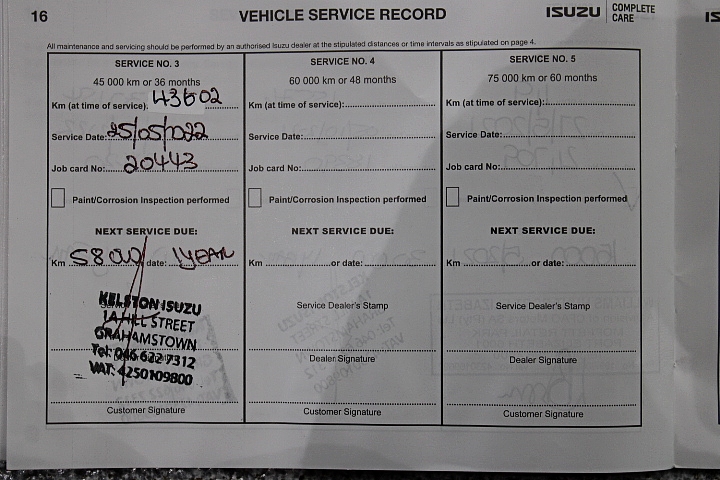 16
VEHICLE SERVICE RECORD
ISUZU
COMPLETE
CARE
All maintenance and servicing should be performed by an authorised Isuzu dealer at the stipulated distances or time intervals as stipulated on page 4.
SERVICE NO. 3
45 000 km or 36 months
Km (at time of service): 43602
Service Date: 25/05/2022
Job card No: 20443
Paint/Corrosion Inspection performed
NEXT SERVICE DUE:
Km 58 000/ date: 1YEAR
KELSTON ISUZU
1A HILL STREET
GRAHAMSTOWN
Tel: 046 622 7312
VAT: 4250109800
Customer Signature
SERVICE NO. 4
60 000 km or 48 months
Km (at time of service):
Service Date:
Job card No:
Paint/Corrosion Inspection performed
NEXT SERVICE DUE:
Km or date:
Service Dealer's Stamp
Dealer Signature
Customer Signature
SERVICE NO. 5
75 000 km or 60 months
Km (at time of service):
Service Date:
Job card No:
Paint/Corrosion Inspection performed
NEXT SERVICE DUE:
Km or date:
Service Dealer's Stamp
Dealer Signature
Customer Signature